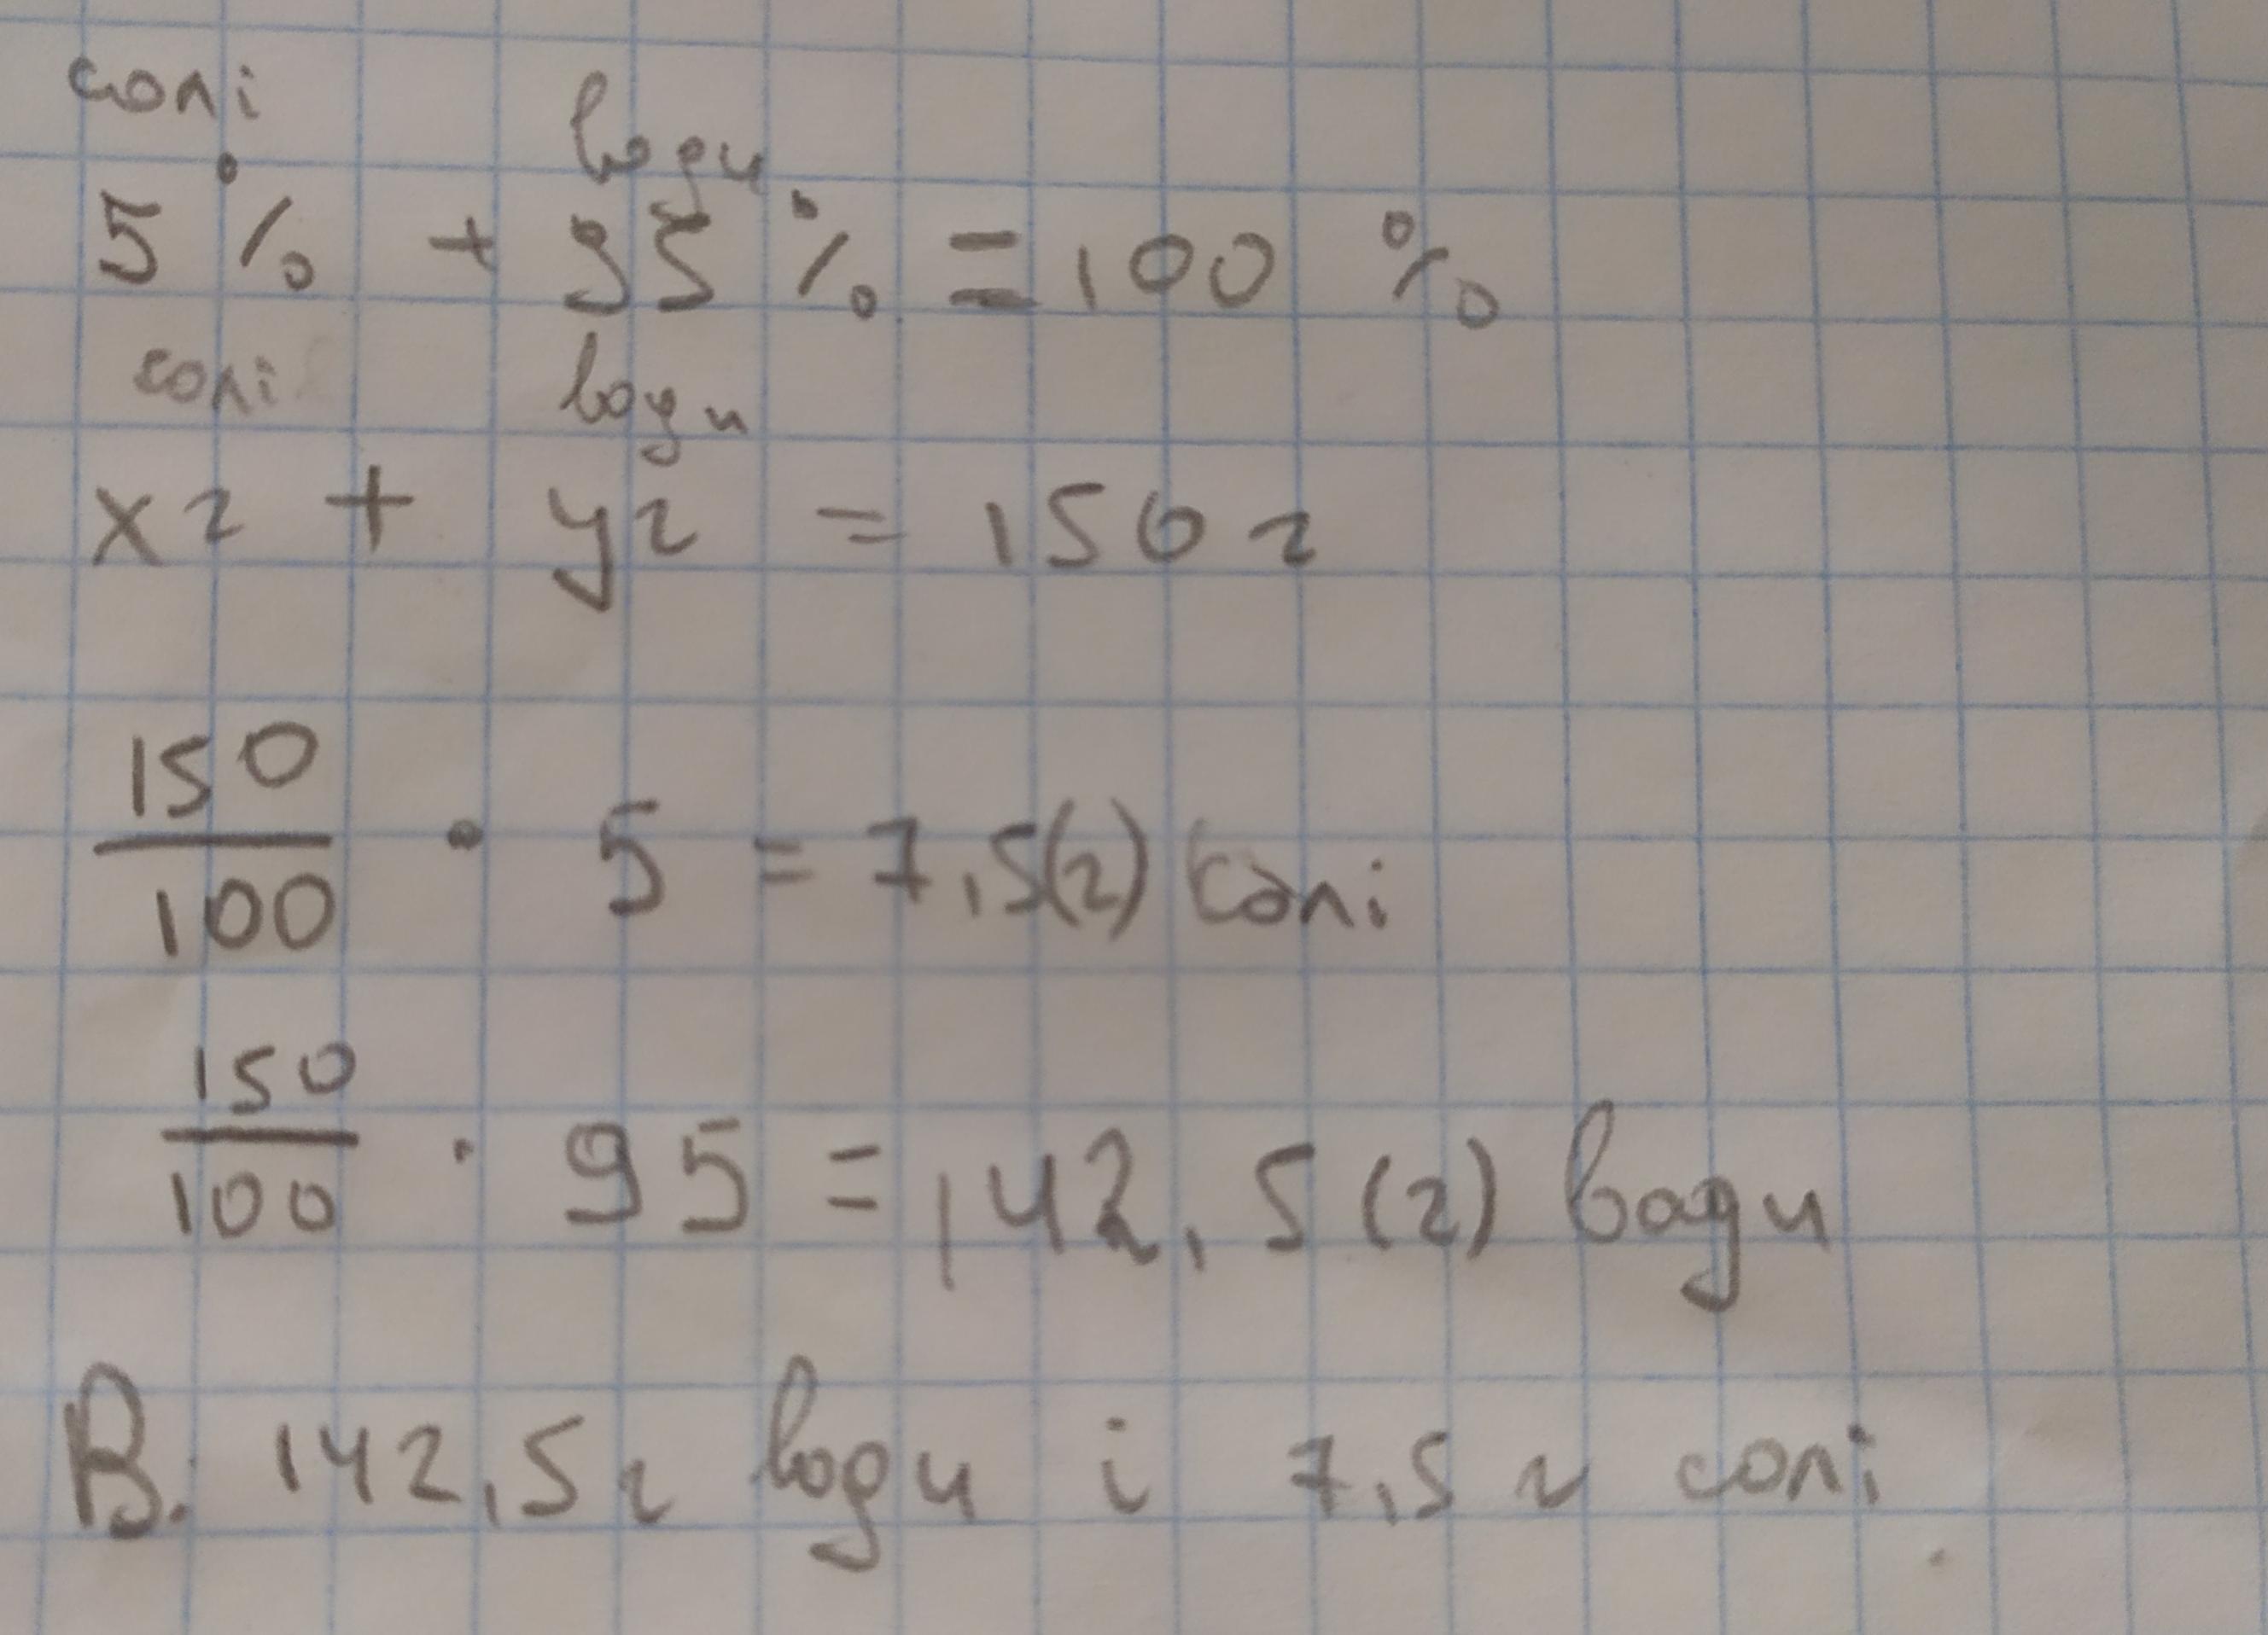 солі води
5 % + 95 % = 100 %
солі води
x г + y г = 150 г
150/100 · 5 = 7,5(г) солі
150/100 · 95 = 142,5(г) вади
В. 142,5 г води і 7,5 г солі